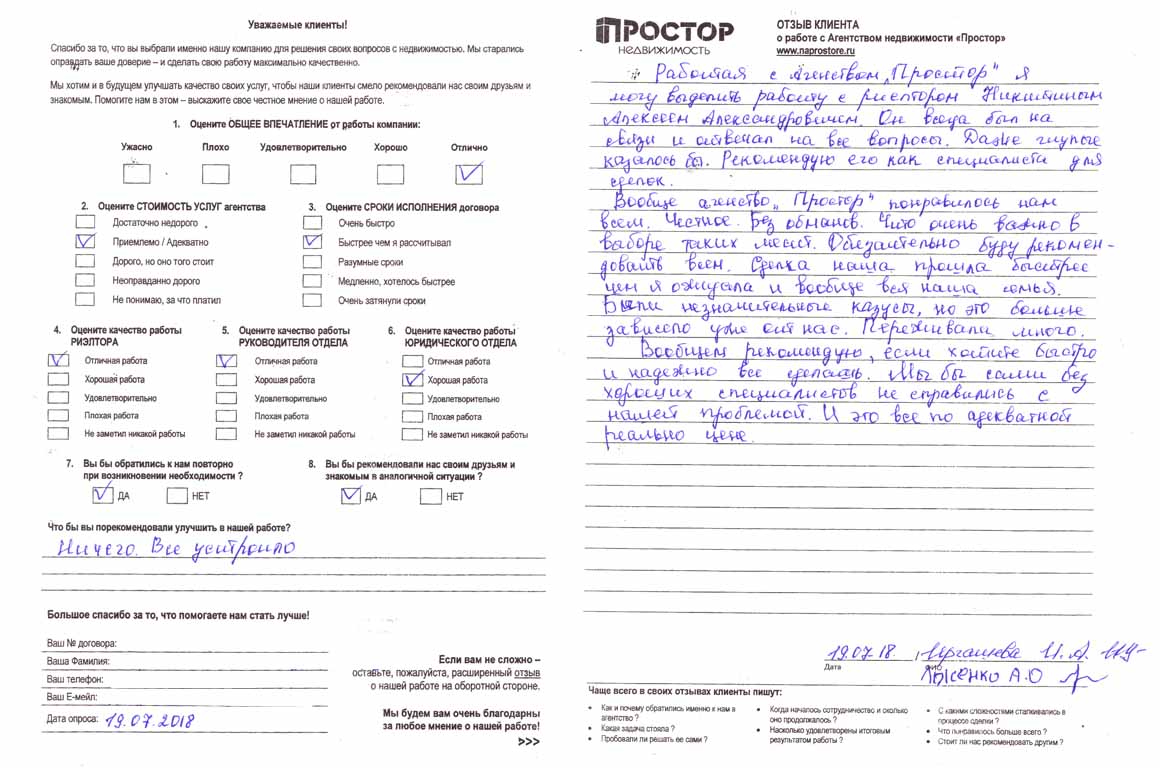 Уважаемые клиенты!
Спасибо за то, что вы выбрали именно нашу компанию для решения своих вопросов с недвижимостью. Мы старались
оправдать ваше доверие – и сделать свою работу максимально качественно.
Мы хотим и в будущем улучшать качество своих услуг, чтобы наши клиенты смело рекомендовали нас своим друзьям и
знакомым. Помогите нам в этом – выскажите свое честное мнение о нашей работе.
1. Оцените ОБЩЕЕ ВПЕЧАТЛЕНИЕ от работы компании:
Ужасно Плохо Удовлетворительно Хорошо Отлично
2. Оцените СТОИМОСТЬ УСЛУГ агентства
Достаточно недорого
Приемлемо / Адекватно
Дорого, но оно того стоит
Неоправданно дорого
Не понимаю, за что платил
3. Оцените СРОКИ ИСПОЛНЕНИЯ договора
Очень быстро
Быстрее чем я рассчитывал
Разумные сроки
Медленно, хотелось быстрее
Очень затянули сроки
4. Оцените качество работы
РИЭЛТОРА
Отличная работа
Хорошая работа
Удовлетворительно
Плохая работа
Не заметил никакой работы
5. Оцените качество работы
РУКОВОДИТЕЛЯ ОТДЕЛА
Отличная работа
Хорошая работа
Удовлетворительно
Плохая работа
Не заметил никакой работы
6. Оцените качество работы
ЮРИДИЧЕСКОГО ОТДЕЛА
Отличная работа
Хорошая работа
Удовлетворительно
Плохая работа
Не заметил никакой работы
7. Вы бы обратились к нам повторно
при возникновении необходимости ?
ДА НЕТ
8. Вы бы рекомендовали нас своим друзьям и
знакомым в аналогичной ситуации ?
ДА НЕТ
Что бы вы порекомендовали улучшить в нашей работе?
Ничего. Все устроило
Большое спасибо за то, что помогаете нам стать лучше!
Ваш № договора:
Ваша Фамилия:
Ваш телефон:
Ваш Е-мейл:
Дата опроса: 19.07.2018
Если вам не сложно –
оставьте, пожалуйста, расширенный отзыв
о нашей работе на оборотной стороне.
Мы будем вам очень благодарны
за любое мнение о нашей работе!
>>>
ПРОСТОР
НЕДВИЖИМОСТЬ
ОТЗЫВ КЛИЕНТА
о работе с Агентством недвижимости «Простор»
www.naprostore.ru
Работая с Агенством „Простор" я
могу выделить работу с риелтором Никитиным
Алексеем Александровичем. Он всегда был на
связи и отвечал на все вопросы. Даже глупые
казалось бы. Рекомендую его как специалиста для
сделок.
Вообще агенство „Простор" понравилось нам
всем. Честное. Без обманов. Что очень важно в
выборе таких мест. Обязательно буду рекомен-
довать всем. Сделка наша прошла быстрее
чем я ожидала и вообще вся наша семья.
Были незначительные казусы, но это больше
зависело уже от нас. Переживали много.
Вообщем рекомендую, если хотите быстро
и надежно все сделать. Мы бы сами без
хороших специалистов не справились с
нашей проблемой. И это все по адекватной
реально цене.
19.07.18. И.А.
Дата ФИО
Лысенко А.О
Чаще всего в своих отзывах клиенты пишут:
• Как и почему обратились именно к нам в
агентство ?
• Какая задача стояла ?
• Пробовали ли решать ее сами ?
• Когда началось сотрудничество и сколько
оно продолжалось ?
• Насколько удовлетворены итоговым
результатом работы ?
• С какими сложностями сталкивались в
процессе сделки ?
• Что понравилось больше всего ?
• Стоит ли нас рекомендовать другим ?